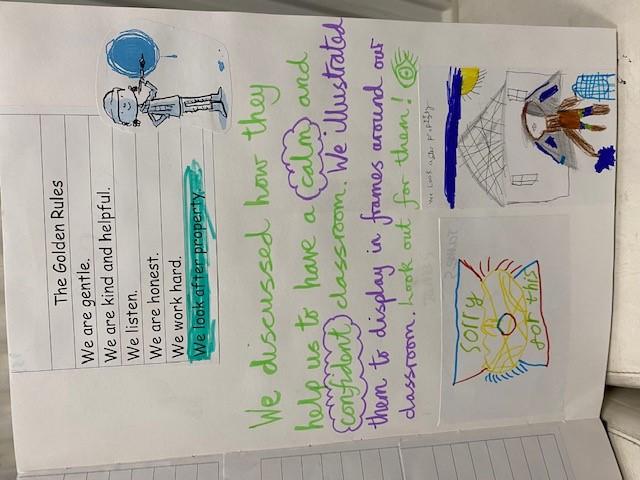 The Golden Rules
We are gentle.
We are kind and helpful.
We listen.
We are honest.
We work hard.
We look after property.
We discussed how they
help us to have a calm and
confident classroom. We illustrated
them to display in frames around our
classroom. Look out for them!
We look after
Sorry
got this